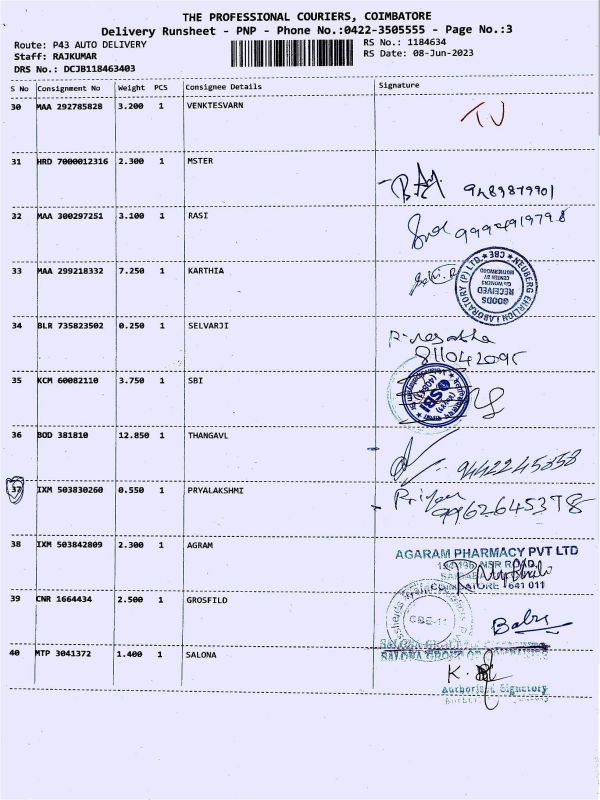 THE PROFESSIONAL COURIERS, COIMBATORE
Delivery Runsheet - PNP - Phone No.:0422-3505555 - Page No.:3
Route: P43 AUTO DELIVERY RS No.: 1184634
Staff: RAJKUMAR RS Date: 08-Jun-2023
DRS No.: DCJB118463403
S No Consignment No Weight PCS Consignee Details Signature
30 MAA 292785828 3.200 1 VENKTESVARN
31 HRD 7000012316 2.300 1 MSTER
9489879901
32 MAA 300297251 3.100 1 RASI
9994919798
33 MAA 299218332 7.250 1 KARTHIA
NEUBERG EHRLICH LABORATORY (P) LTD. CBE
GOODS
RECEIVED
34 BLR 735823502 0.250 1 SELVARJI
811042095
35 KCM 60082110 3.750 1 SBI
SBI
36 BOD 381810 12.850 1 THANGAVL
9442245858
37 IXM 503830260 0.550 1 PRYALAKSHMI
Priya
9962645378
38 IXM 503842809 2.300 1 AGRAM
AGARAM PHARMACY PVT LTD
COIMBATORE - 641 011
39 CNR 1664434 2.500 1 GROSFILD
Babu
40 MTP 3041372 1.400 1 SALONA
SALONA GROUP OF COMPANIES
Authorised Signatory